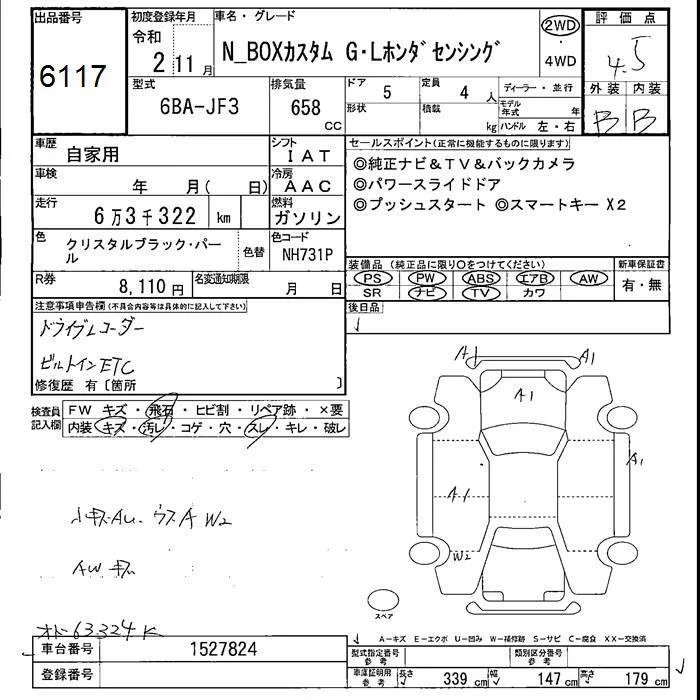 出品番号
6117
初度登録年月
令和
2 11 月
車名・グレード
N_BOXカスタム G・Lホンダセンシング
2WD
・
4WD
評価点
4.5
外装 内装
B B
型式
6BA-JF3
排気量
658
CC
ドア
5
定員
4 人
ディーラー・並行
形状
積載
kg
モデル年式 年
ハンドル 左・右
車歴
自家用
シフト
IAT
車検
年 月( 日)
冷房
AAC
走行
6万3千322 km
燃料
ガソリン
色
クリスタルブラック・パール
色替
色コード
NH731P
R券
8,110円
名変通知期限
月 日
セールスポイント(正常に機能するものに限ります)
◎純正ナビ&TV&バックカメラ
◎パワースライドドア
◎プッシュスタート ◎スマートキー X2
装備品(純正品に限り○をつけてください)
PS PW ABS エアB AW
SR ナビ TV カワ
新車保証書
有・無
後日品
注意事項申告欄(不具合内容等は具体的に記入して下さい)
ドライブレコーダー
ビルトインETC
修復歴 有〔箇所 〕
検査員記入欄
FW キズ・飛石・ヒビ割・リペア跡・×要
内装 キズ・汚レ・コゲ・穴・スレ・キレ・破レ
小キズAU.ウスA W2
AW キズ
オド63324K
A1 A1
A1
A1
A1
W2
スペア
A-キズ E-エクボ U-凹み W-補修跡 S-サビ C-腐食 XX-交換済
車台番号
1527824
登録番号
型式指定番号
参考
類別区分番号
参考
車庫証明用
参考
長さ 339 cm 幅 147 cm 高さ 179 cm